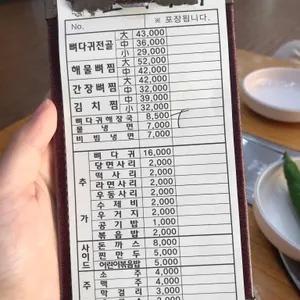 ※ 포장됩니다.
No.
뼈다귀전골 大 43,000
中 36,000
小 29,000
해물뼈찜 大 52,000
中 42,000
간장뼈찜 大 42,000
中 32,000
김치찜 中 39,000
小 32,000
뼈다귀해장국 8,500
물냉면 7,000
비빔냉면 7,000
추가
뼈다귀 16,000
당면사리 2,000
떡사리 2,000
라면사리 2,000
우동사리 2,000
수제비 2,000
우거지 2,000
공기밥 1,000
볶음밥 2,000
사이드
돈까스 8,000
찐만두 5,000
어린이볶음밥 5,000
주
소주 4,000
맥주 4,000
막걸리 3,000